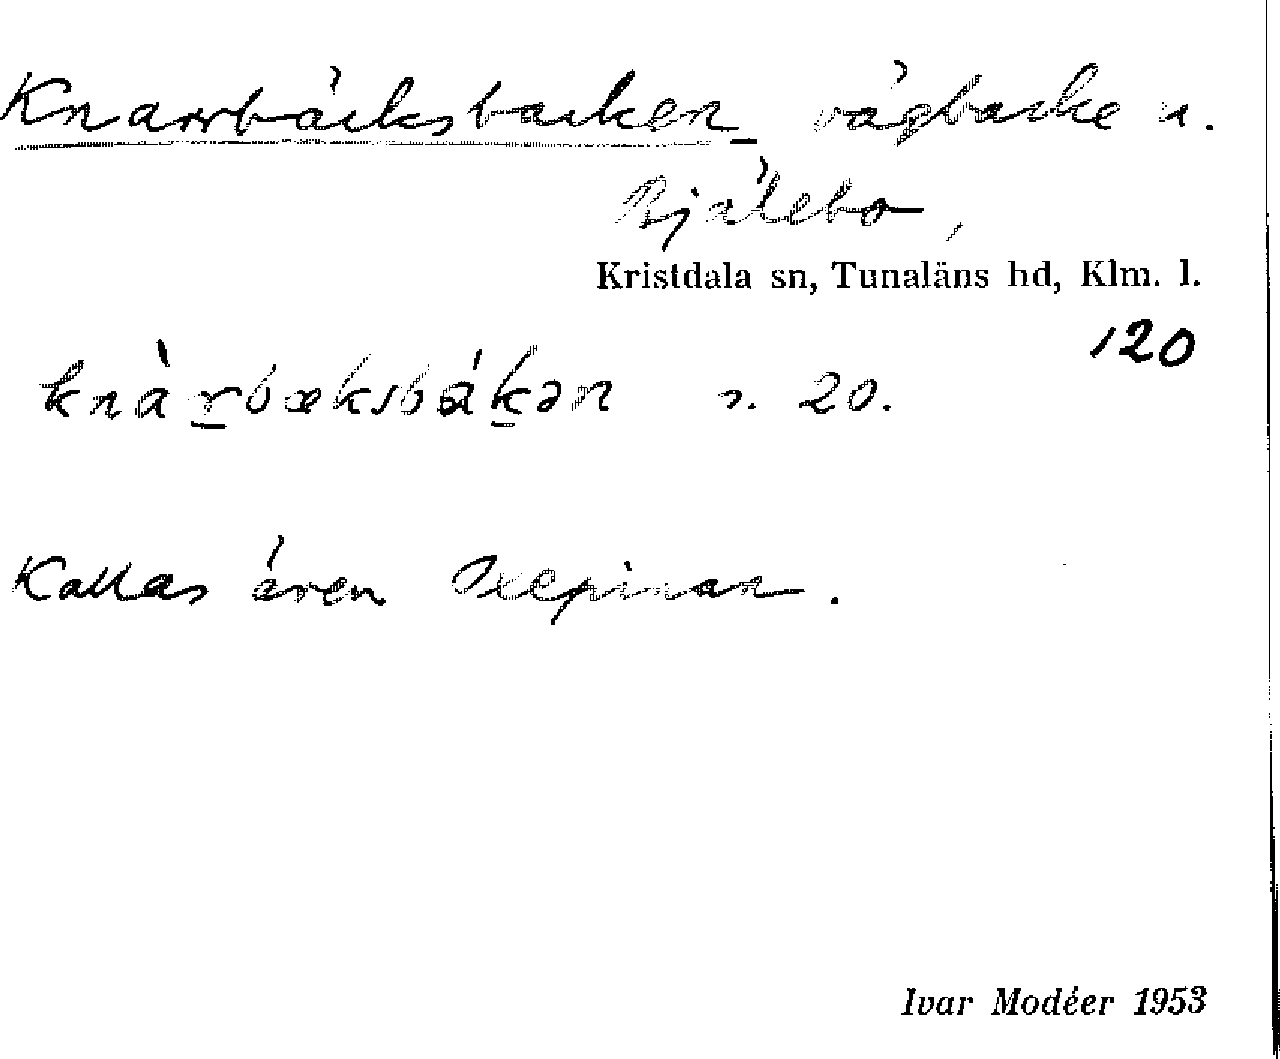 Knarrbäcksbacken vägbacke u.
Bjälebo,
Kristdala sn, Tunaläns hd, Klm. l.
120
knàr̲bæksbák̲ən s. 20.
Kallas även
Ivar Modéer 1953